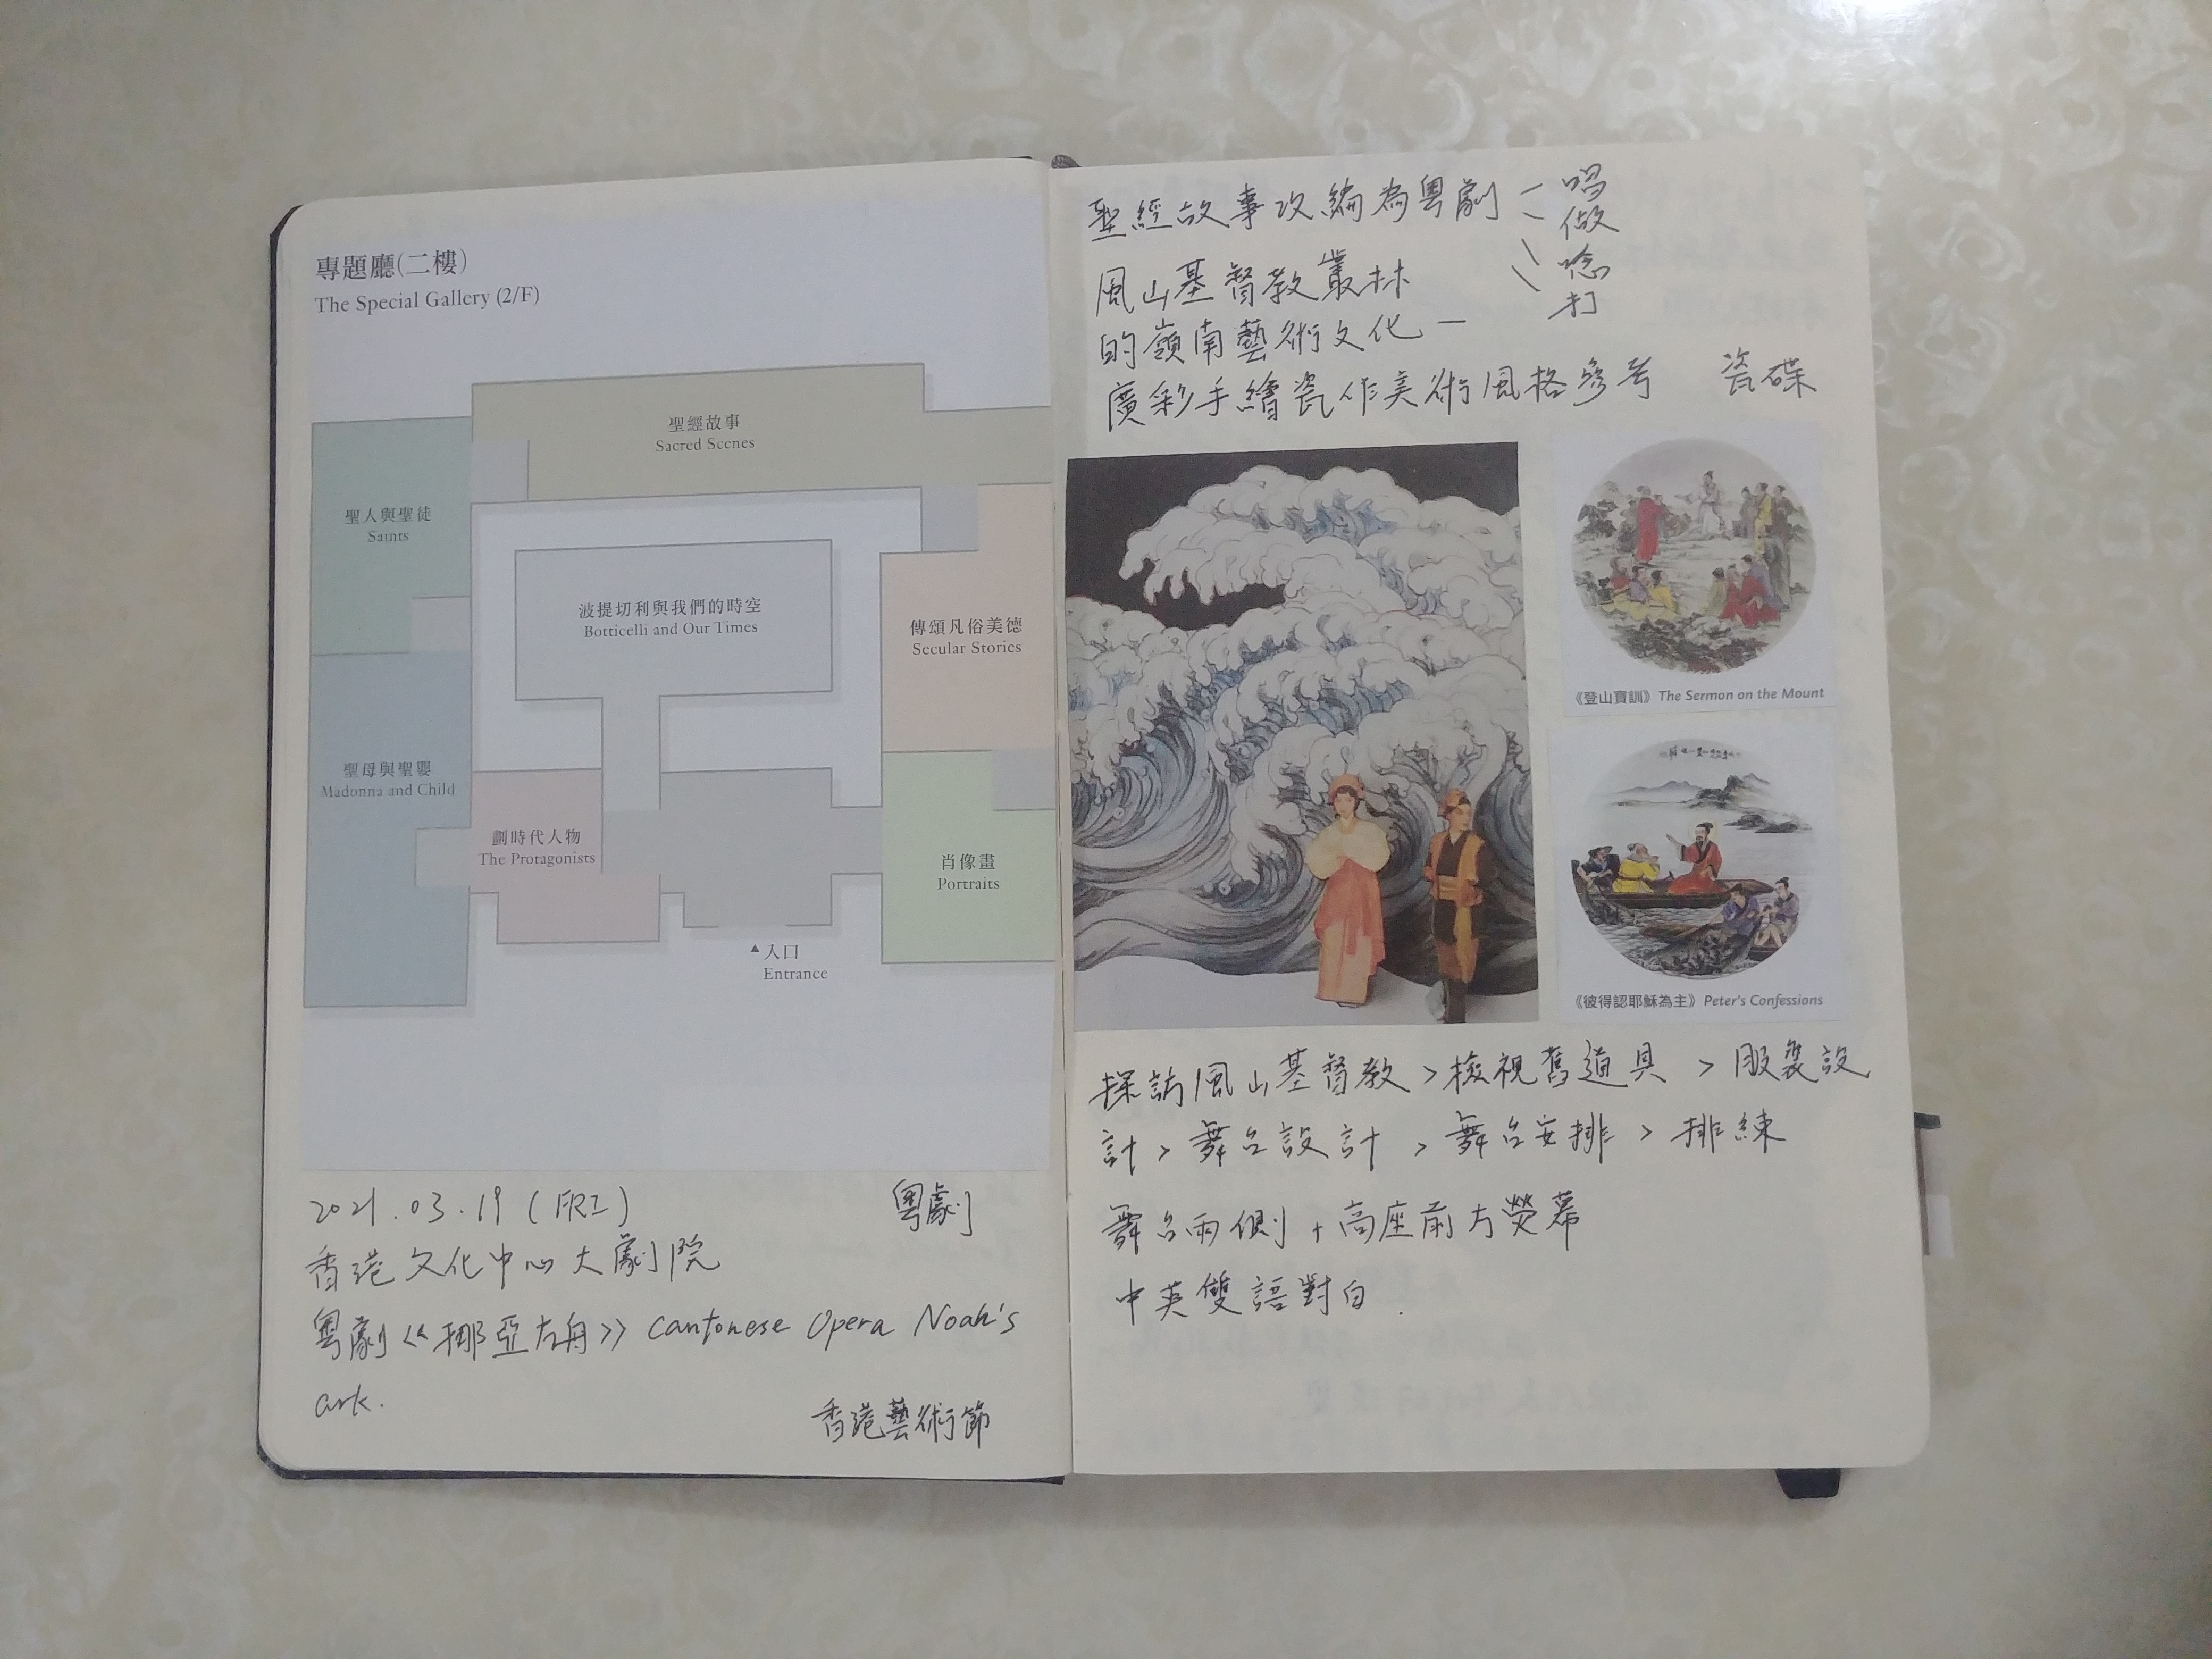 專題廳(二樓)
The Special Gallery (2/F)
聖經故事
Sacred Scenes
聖人與聖徒
Saints
波提切利與我們的時空
Botticelli and Our Times
傳頌凡俗美德
Secular Stories
聖母與聖嬰
Madonna and Child
劃時代人物
The Protagonists
肖像畫
Portraits
▲入口
Entrance
2021.03.19 (FRI) 粵劇
香港文化中心大劇院
粵劇《挪亞方舟》 Cantonese Opera Noah's
ark.
香港藝術節
聖經故事改編為粵劇
唱
做
唸
打
風山基督教叢林
的嶺南藝術文化 —
廣彩手繪瓷作美術風格參考 瓷碟
《登山寶訓》The Sermon on the Mount
《彼得認耶穌為主》Peter's Confessions
探訪風山基督教 > 檢視舊道具 > 服裝設
計 > 舞台設計 > 舞台安排 > 排練
舞台兩側 + 高座前方熒幕
中英雙語對白.